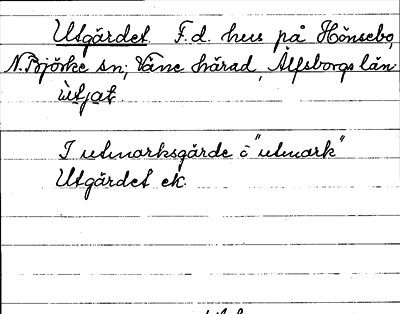 Utgärdet F.d. hus på Hönsebo,
N. Björke sn; Väne härad, Älfsborgs län
ùtjat.
I utmarksgärde ö "utmark"
Utgärdet ek.